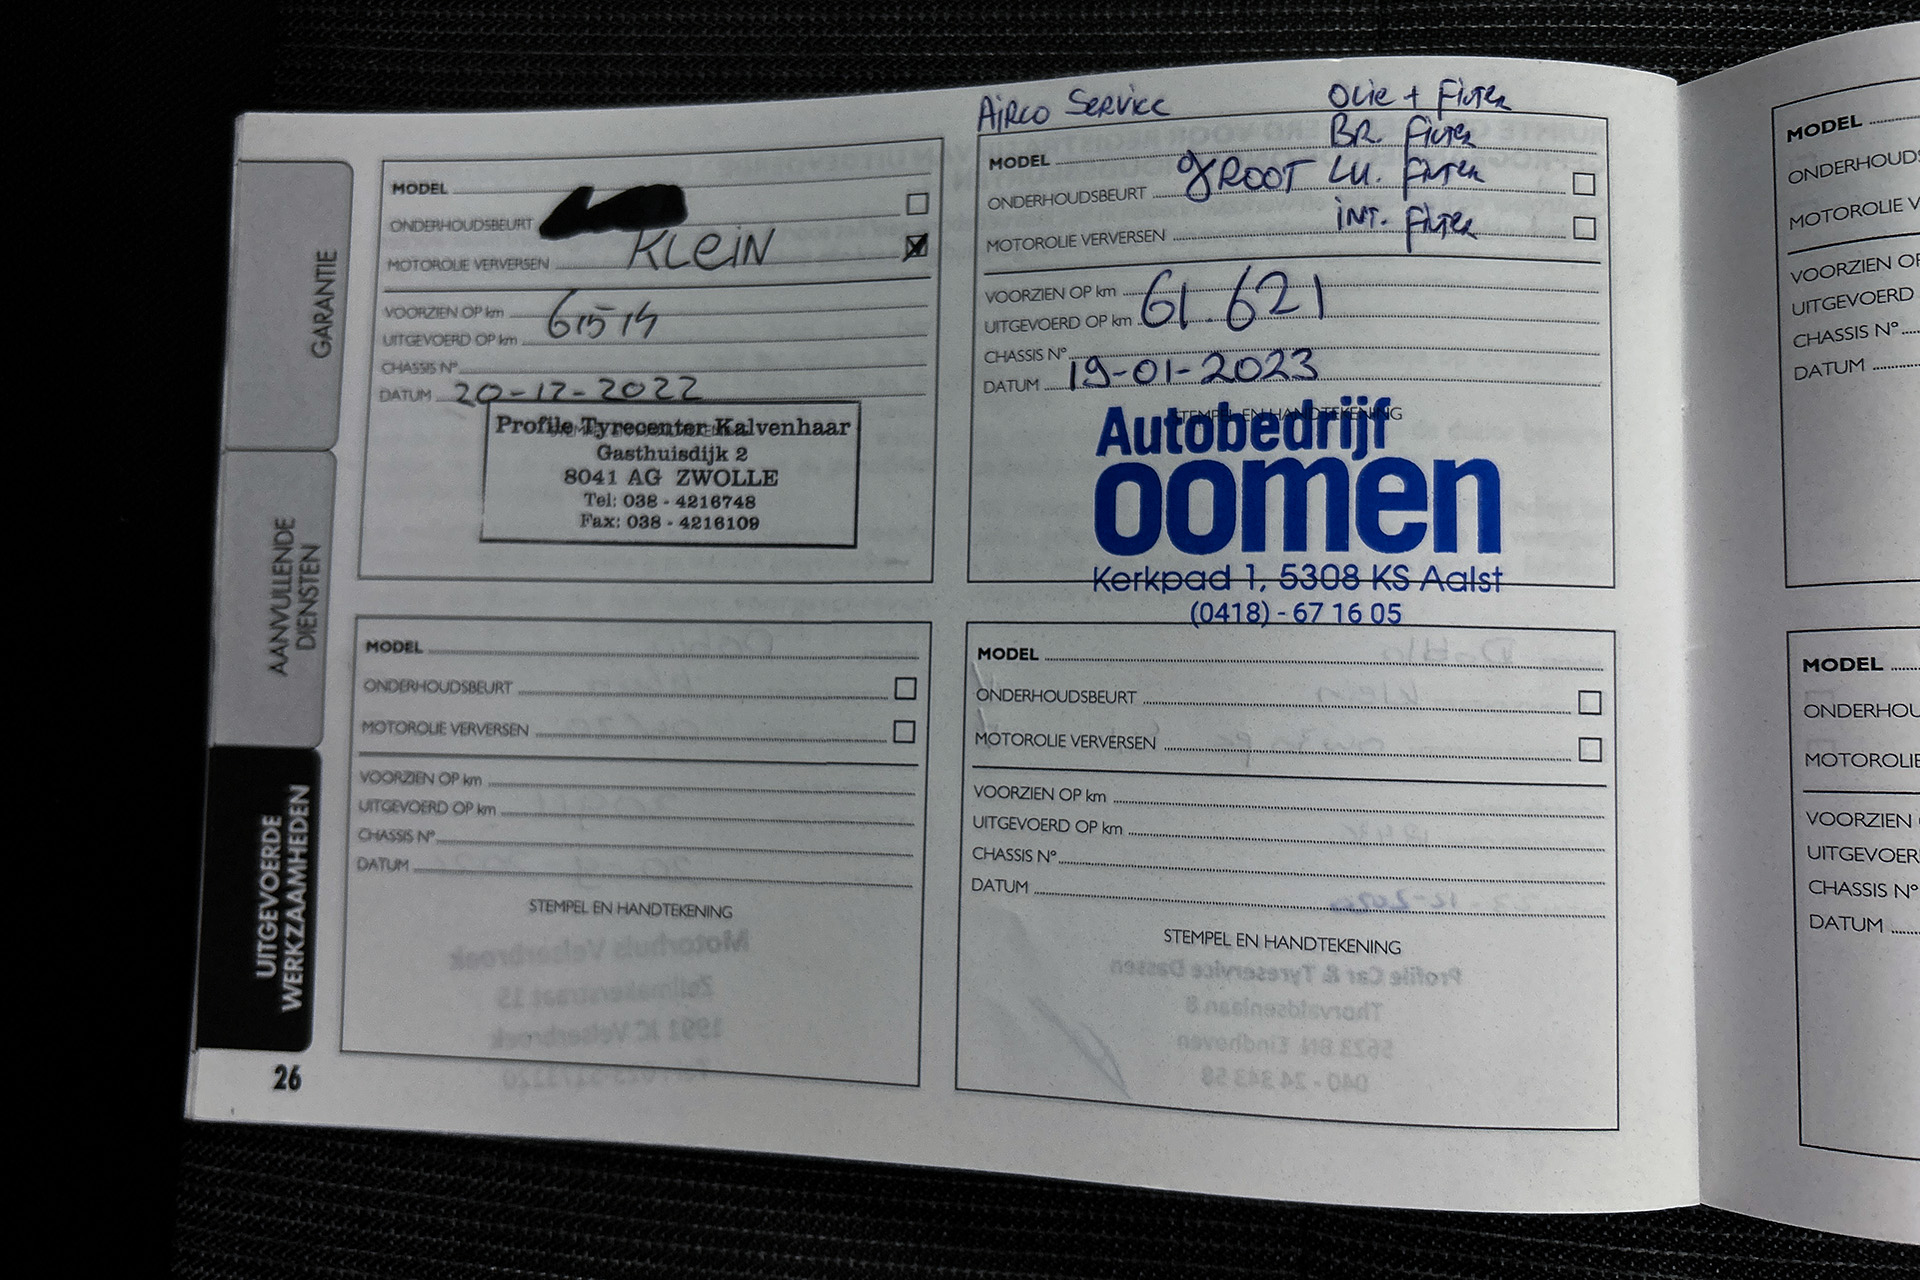 GARANTIE
AANVULLENDE
DIENSTEN
UITGEVOERDE
WERKZAAMHEDEN
26
MODEL
ONDERHOUDSBEURT
MOTOROLIE VERVERSEN KLEIN
VOORZIEN OP km
UITGEVOERD OP km
CHASSIS N°
DATUM 20-12-2022
Profile Tyrecenter Kalvenhaar
Gasthuisdijk 2
8041 AG ZWOLLE
Tel: 038 - 4216748
Fax: 038 - 4216109
AIRCO SERVICE OLIE + FILTER
BR. FILTER
MODEL
ONDERHOUDSBEURT GROOT LU. FILTER
MOTOROLIE VERVERSEN INT. FILTER
VOORZIEN OP km
UITGEVOERD OP km 61.621
CHASSIS N°
DATUM 19-01-2023
STEMPEL EN HANDTEKENING
Autobedrijf
oomen
Kerkpad 1, 5308 KS Aalst
(0418) - 67 16 05
MODEL
ONDERHOUDSBEURT
MOTOROLIE VERVERSEN
VOORZIEN OP km
UITGEVOERD OP km
CHASSIS N°
DATUM
STEMPEL EN HANDTEKENING
MODEL
ONDERHOUDSBEURT
MOTOROLIE VERVERSEN
VOORZIEN OP km
UITGEVOERD OP km
CHASSIS N°
DATUM
STEMPEL EN HANDTEKENING
MODEL
ONDERHOUDS
MOTOROLIE V
VOORZIEN OP
UITGEVOERD
CHASSIS N°
DATUM
MODEL
ONDERHOU
MOTOROLIE
VOORZIEN
UITGEVOER
CHASSIS N°
DATUM